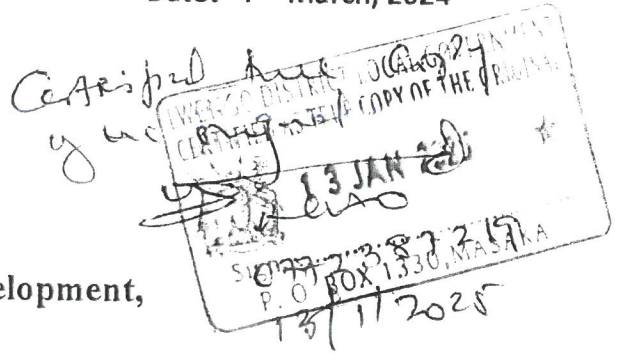 March, 2024
Certified true Copy
LWENGO DISTRICT LOCAL GOVERNMENT
CERTIFIED TRUE COPY OF THE ORIGINAL
13 JAN
CAO
P. O. BOX 1330, MASAKA
13/1/2025
elopment,